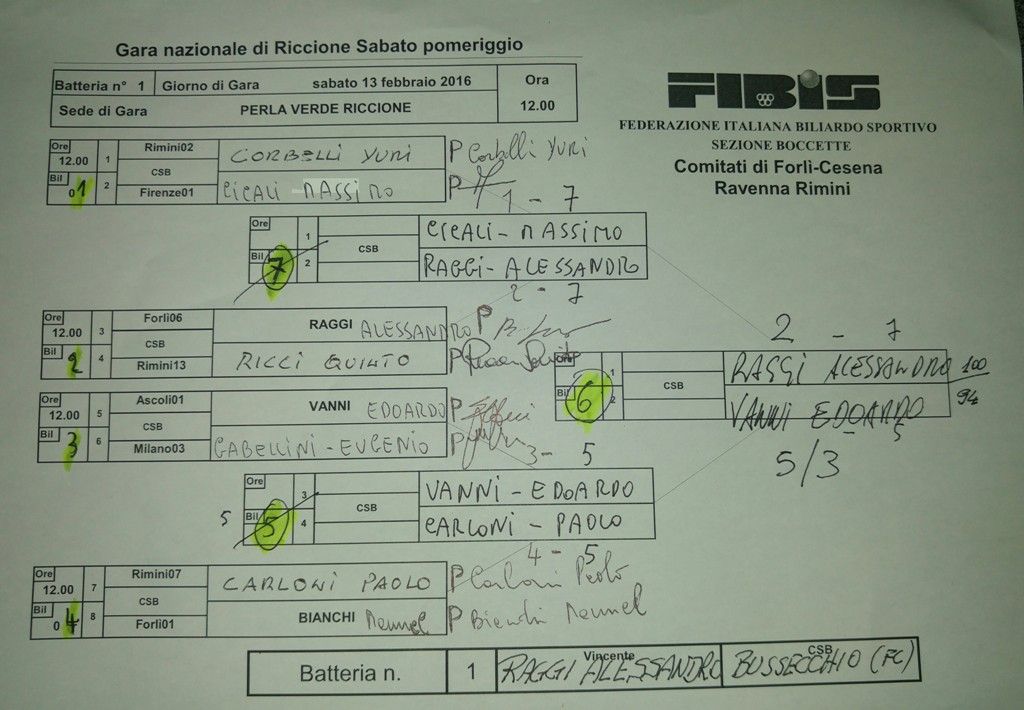 Gara nazionale di Riccione Sabato pomeriggio
Batteria n° 1 Giorno di Gara sabato 13 febbraio 2016 Ora
Sede di Gara PERLA VERDE RICCIONE 12.00
FIBiS
FEDERAZIONE ITALIANA BILIARDO SPORTIVO
SEZIONE BOCCETTE
Comitati di Forlì-Cesena
Ravenna Rimini
Ore 12.00 1 Rimini02 CORBELLI YURI P Corbelli YURI
CSB
Bil 01 2 Firenze01 CICALI MASSIMO P
1 - 7
Ore 1 CICALI - MASSIMO
CSB
Bil 7 2 RAGGI - ALESSANDRO
2 - 7
Ore 12.00 3 Forlì06 RAGGI ALESSANDRO P
CSB
Bil 2 4 Rimini13 RICCI QUINTO P
2 - 7
1 RAGGI ALESSANDRO 100
CSB
Bil 6 2 VANNI EDOARDO 94
5
5/3
Ore 12.00 5 Ascoli01 VANNI EDOARDO P
CSB
Bil 3 6 Milano03 GABELLINI - EUGENIO P
3 - 5
Ore 3 VANNI - EDOARDO
CSB
5 Bil 5 4 CARLONI - PAOLO
4 - 5
Ore 12.00 7 Rimini07 CARLONI PAOLO P Carloni Paolo
CSB
Bil 0 4 8 Forlì01 BIANCHI P Bianchi
Batteria n. 1 Vincente RAGGI ALESSANDRO CSB BUSSECCHIO (FC)